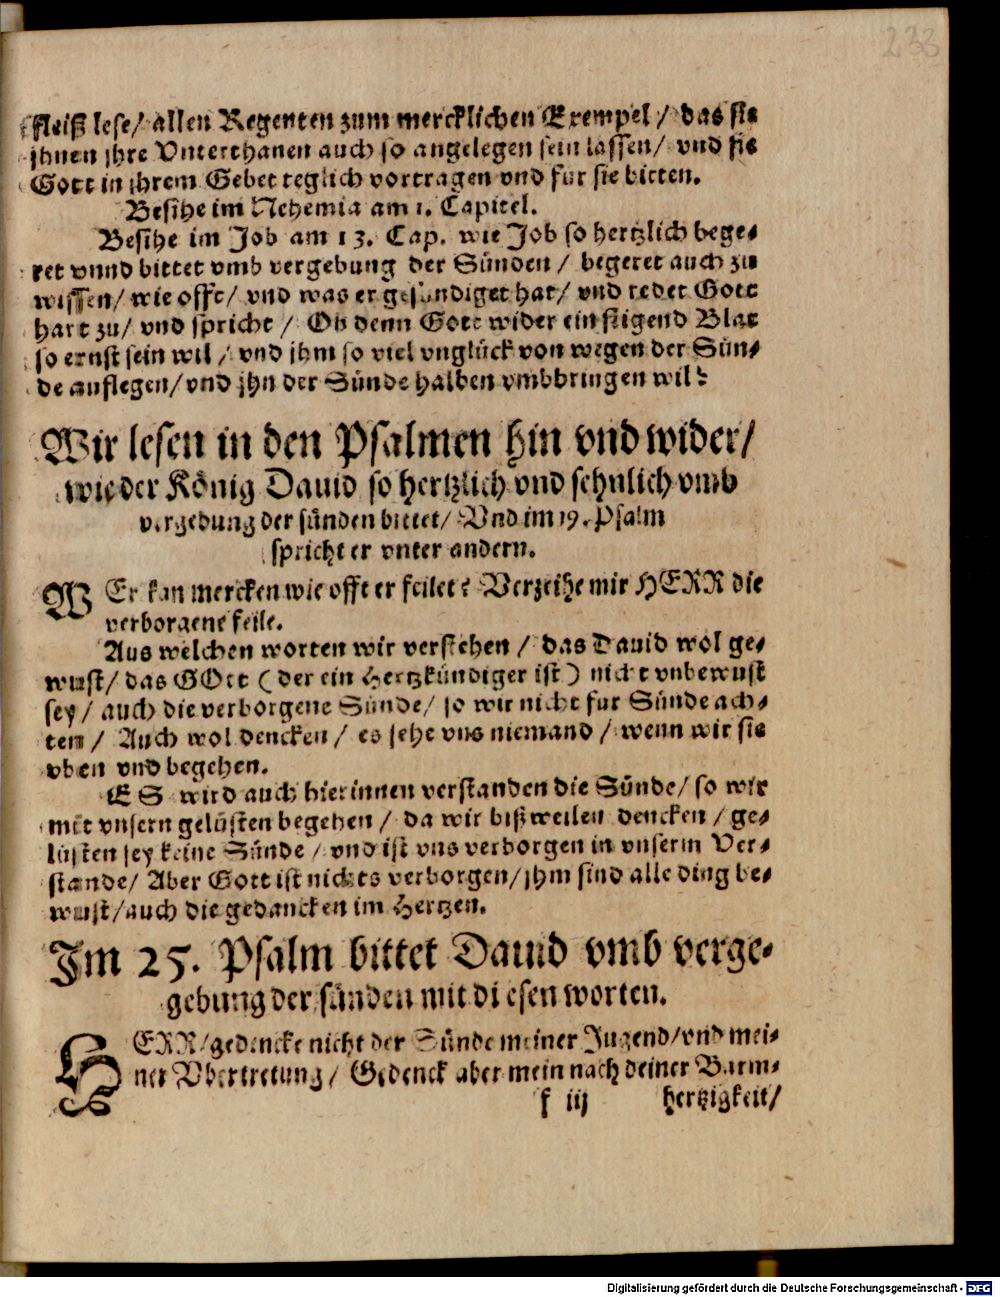 233
fleiß lese/ allen Regenten zum mercklichen Exempel / das sie
jhnen jhre Vnterthanen auch so angelegen sein lassen/ vnd sie
Gott in jhrem Gebet teglich vortragen vnd für sie bitten.
Besihe im Nehemia am 1. Capitel.
Besihe im Job am 13. Cap. wie Job so hertzlich bege-
ret vnnd bittet vmb vergebung der Sünden / begeret auch zu
wissen/ wie offt/ vnd was er gesündiget hat/ vnd redet Gott
hart zu/ vnd spricht / Ob denn Gott wider ein fligend Blat
so ernst sein wil / vnd jhm so viel vnglück von wegen der Sün-
de auflegen/ vnd jhn der Sünde halben vmbbringen wil?
Wir lesen in den Psalmen hin vnd wider/
wie der König Dauid so hertzlich vnd sehnlich vmb
vergebung der sünden bittet/ Vnd im 19. Psalm
spricht er vnter andern.
WEr kan mercken wie offt er feilet? Verzeihe mir HERR die
verborgene feile.
Aus welchen worten wir verstehen / das Dauid wol ge-
wust/ das GOtt ( der ein Hertzkündiger ist ) nicht vnbewust
sey / auch die verborgene Sünde/ so wir nicht für Sünde ach-
ten / Auch wol dencken / es sehe vns niemand / wenn wir sie
vben vnd begehen.
ES wird auch hierinnen verstanden die Sünde/ so wir
mit vnsern gelüsten begehen / da wir bißweilen dencken / ge-
lüsten sey keine Sünde / vnd ist vns verborgen in vnserm Ver-
stande/ Aber Gott ist nichts verborgen/ jhm sind alle ding be-
wust/ auch die gedancken im Hertzen.
Im 25. Psalm bittet Dauid vmb verge-
gebung der sünden mit diesen worten.
HERR/ gedencke nicht der Sünde meiner Jugend/ vnd mei-
ner Vbertretung / Gedenck aber mein nach deiner Barm-
f iij hertzigkeit/
Digitalisierung gefördert durch die Deutsche Forschungsgemeinschaft - DFG